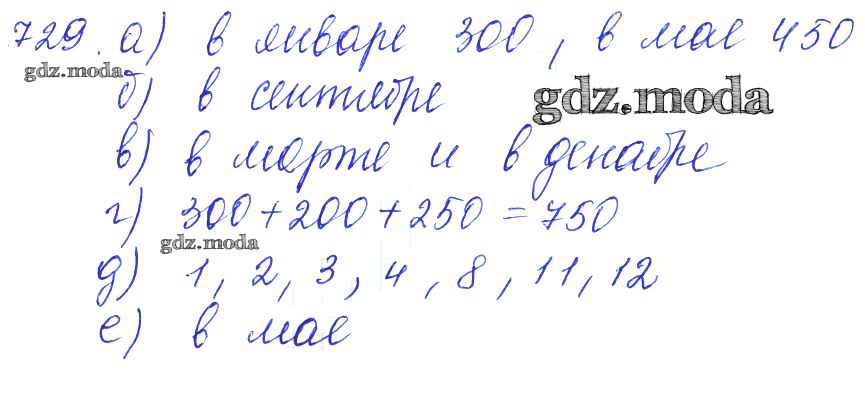 729. а) в январе 300, в мае 450
gdz.moda
б) в сентябре
gdz.moda
в) в марте и в декабре
г) 300+200+250=750
gdz.moda
д) 1, 2, 3, 4, 8, 11, 12
е) в мае